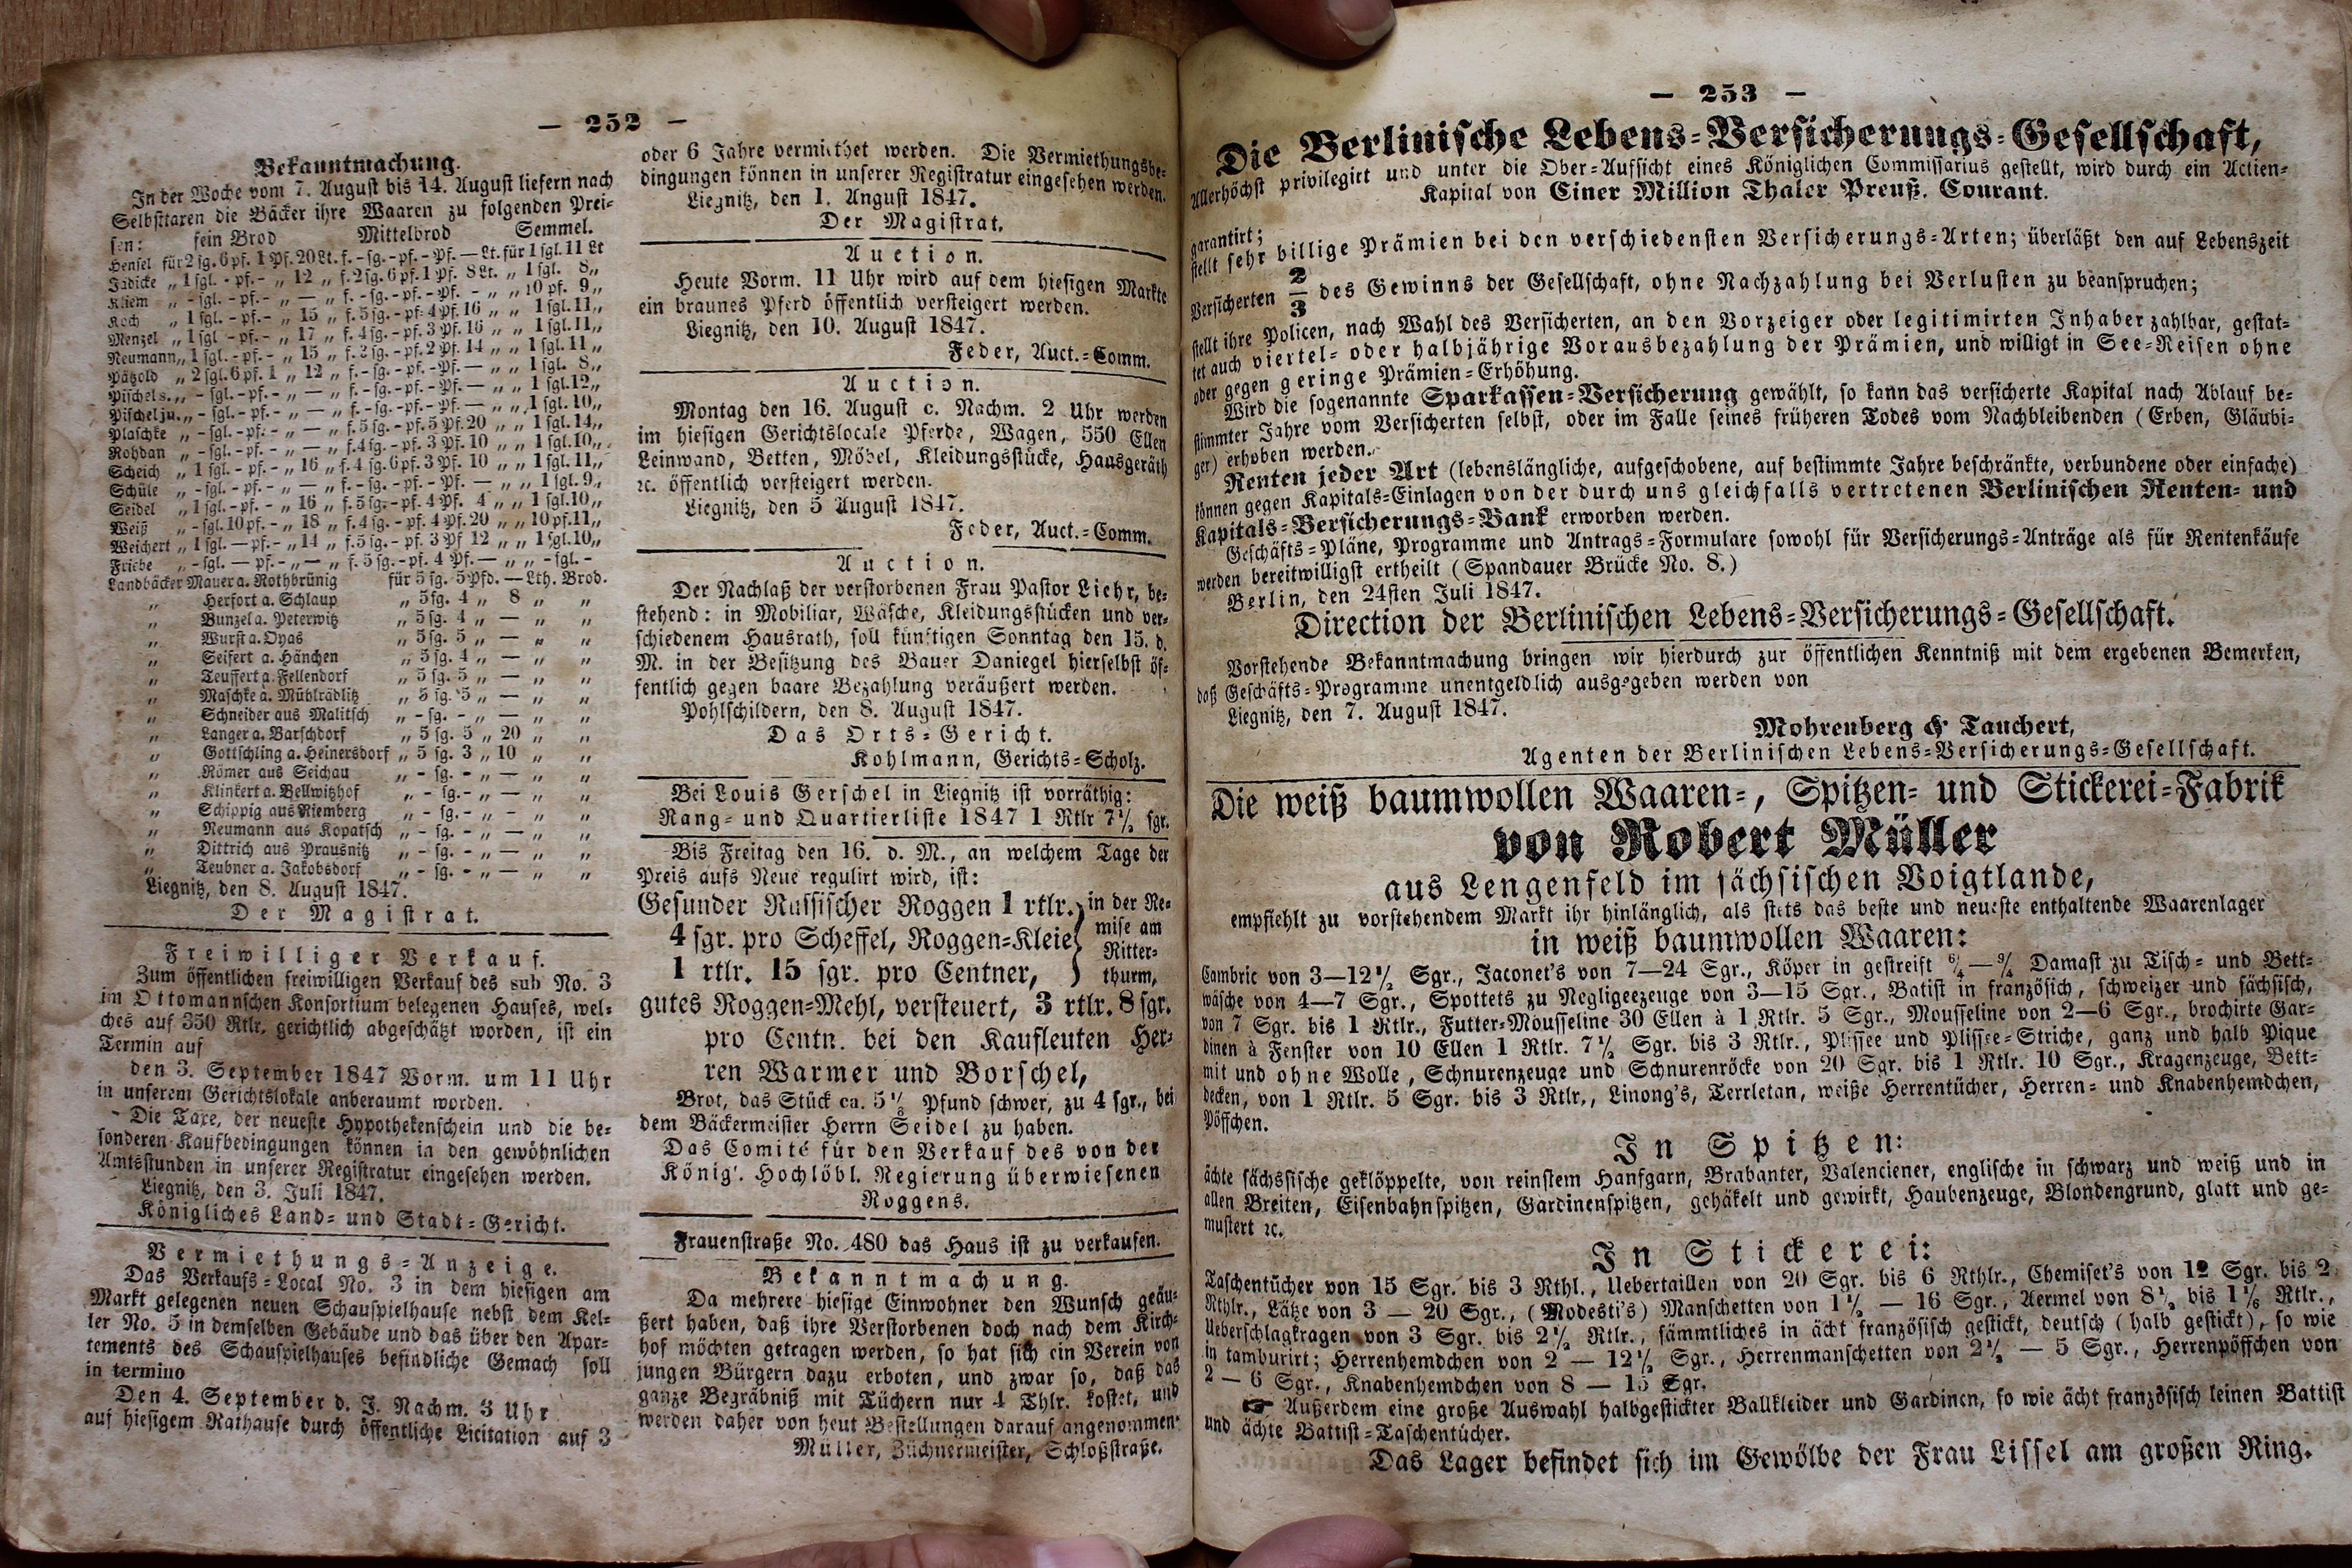 — 252 —
Bekanntmachung.
In der Woche vom 7. August bis 14. August liefern nach
Selbsttaxen die Bäcker ihre Waaren zu folgenden Prei-
sen: fein Brod Mittelbrod Semmel.
Hensel für 2 sg. 6 pf. 1 Pf. 20 Lt. f. - sg. - pf. - Pf. — Lt. für 1 sgl. 11 Lt
Jädicke „ 1 sgl. - pf. - „ 12 „ f. 2 sg. 6 pf. 1 Pf. 8 Lt. „ 1 sgl. 8 „
Kliem „ - sgl. - pf. - „ — „ f. - sg. - pf. - Pf. - „ „ 10 pf. 9 „
Koch „ 1 sgl. - pf. - „ 15 „ f. 5 sg. - pf. 4 Pf. 16 „ „ 1 sgl. 11 „
Menzel „ 1 sgl - pf. - „ 17 „ f. 4 sg. - pf. 3 Pf. 16 „ „ 1 sgl. 11 „
Neumann „ 1 sgl. - pf. - „ 15 „ f. 3 sg. - pf. 2 Pf. 14 „ „ 1 sgl. 11 „
Pätzold „ 2 sgl. 6 pf. 1 „ 12 „ f. - sg. - pf. - Pf. — „ „ 1 sgl. 8 „
Pischel s. „ - sgl. - pf. - „ — „ f. - sg. - pf. - Pf. — „ „ 1 sgl. 12 „
Pischel ju. „ - sgl. - pf. - „ — „ f. - sg. - pf. - Pf. — „ „ 1 sgl. 10 „
Plaschke „ - sgl. - pf. - „ — „ f. 5 sg. - pf. 5 Pf. 20 „ „ 1 sgl. 14 „
Rohdan „ - sgl. - pf. - „ — „ f. 4 sg. - pf. 3 Pf. 10 „ „ 1 sgl. 10 „
Scheich „ 1 sgl. - pf. - „ 16 „ f. 4 sg. 6 pf. 3 Pf. 10 „ „ 1 sgl. 11 „
Schüle „ - sgl. - pf. - „ — „ f. - sg. - pf. - Pf. — „ „ 1 sgl. 9 „
Seidel „ 1 sgl. - pf. - „ 16 „ f. 5 sg. - pf. 4 Pf. 4 „ „ 1 sgl. 10 „
Weiß „ - sgl. 10 pf. - „ 18 „ f. 4 sg. - pf. 4 Pf. 20 „ „ 10 pf. 11 „
Weichert „ 1 sgl. — pf. - „ 14 „ f. 5 sg. - pf. 3 Pf 12 „ „ 1 sgl. 10 „
Friebe „ - sgl. — pf. - „ — „ f. 5 sg. - pf. 4 Pf. — „ „ - sgl. -
Landbäcker Mauer a. Rothbrünig für 5 sg. 5 Pfd. — Lth. Brod.
„ Herfort a. Schlaup „ 5 sg. 4 „ 8 „ „
„ Bunzel a. Peterwitz „ 5 sg. 4 „ — „ „
„ Wurst a. Oyas „ 5 sg. 5 „ — „ „
„ Seifert a. Hänchen „ 5 sg. 4 „ — „ „
„ Teuffert a. Fellendorf „ 5 sg. 5 „ — „ „
„ Maschke a. Mühlrädlitz „ 5 sg. 5 „ — „ „
„ Schneider aus Malitsch „ - sg. - „ — „ „
„ Langer a. Barschdorf „ 5 sg. 5 „ 20 „ „
„ Gottschling a. Heinersdorf „ 5 sg. 3 „ 10 „ „
„ Römer aus Seichau „ - sg. - „ — „ „
„ Klinkert a. Bellwitzhof „ - sg. - „ — „ „
„ Schippig aus Niemberg „ - sg. - „ - „ „
„ Neumann aus Kopatsch „ - sg. - „ — „ „
„ Dittrich aus Prausnitz „ - sg. - „ — „ „
„ Teubner a. Jakobsdorf „ - sg. - „ — „ „
Liegnitz, den 8. August 1847.
Der Magistrat.
Freiwilliger Verkauf.
Zum öffentlichen freiwilligen Verkauf des sub No. 3
im Ottomannschen Konsortium belegenen Hauses, wel-
ches auf 350 Rtlr. gerichtlich abgeschätzt worden, ist ein
Termin auf
den 3. September 1847 Vorm. um 11 Uhr
in unserem Gerichtslokale anberaumt worden.
Die Taxe, der neueste Hypothekenschein und die be-
sonderen Kaufbedingungen können in den gewöhnlichen
Amtsstunden in unserer Registratur eingesehen werden.
Liegnitz, den 3. Juli 1847.
Königliches Land- und Stadt-Gericht.
Vermiethungs-Anzeige.
Das Verkaufs-Local No. 3 in dem hiesigen am
Markt gelegenen neuen Schauspielhause nebst dem Kel-
ler No. 5 in demselben Gebäude und das über den Apar-
tements des Schauspielhauses befindliche Gemach soll
in termino
Den 4. September d. J. Nachm. 3 Uhr
auf hiesigem Rathause durch öffentliche Licitation auf 3
oder 6 Jahre vermiethet werden. Die Vermiethungsbe-
dingungen können in unserer Registratur eingesehen werden.
Liegnitz, den 1. August 1847.
Der Magistrat.
Auction.
Heute Vorm. 11 Uhr wird auf dem hiesigen Markte
ein braunes Pferd öffentlich versteigert werden.
Liegnitz, den 10. August 1847.
Feder, Auct.-Comm.
Auction.
Montag den 16. August c. Nachm. 2 Uhr werden
im hiesigen Gerichtslocale Pferde, Wagen, 550 Ellen
Leinwand, Betten, Möbel, Kleidungsstücke, Hausgeräth
ꝛc. öffentlich versteigert werden.
Liegnitz, den 5 August 1847.
Feder, Auct.-Comm.
Auction.
Der Nachlaß der verstorbenen Frau Pastor Liehr, be-
stehend: in Mobiliar, Wäsche, Kleidungsstücken und ver-
schiedenem Hausrath, soll künftigen Sonntag den 15. d.
M. in der Besitzung des Bauer Daniegel hierselbst öf-
fentlich gegen baare Bezahlung veräußert werden.
Pohlschildern, den 8. August 1847.
Das Orts-Gericht.
Kohlmann, Gerichts-Scholz.
Bei Louis Gerschel in Liegnitz ist vorräthig:
Rang- und Quartierliste 1847 1 Rtlr 7½ sgr.
Bis Freitag den 16. d. M., an welchem Tage der
Preis aufs Neue regulirt wird, ist:
Gesunder Russischer Roggen 1 rtlr.
4 sgr. pro Scheffel, Roggen-Kleie
1 rtlr. 15 sgr. pro Centner,
in der Re-
mise am
Ritter-
thurm,
gutes Roggen-Mehl, versteuert, 3 rtlr. 8 sgr.
pro Centn. bei den Kaufleuten Her-
ren Warmer und Borschel,
Brot, das Stück ca. 5½ Pfund schwer, zu 4 sgr., bei
dem Bäckermeister Herrn Seidel zu haben.
Das Comité für den Verkauf des von der
König. Hochlöbl. Regierung überwiesenen
Roggens.
Frauenstraße No. 480 das Haus ist zu verkaufen.
Bekanntmachung.
Da mehrere hiesige Einwohner den Wunsch geäu-
ßert haben, daß ihre Verstorbenen doch nach dem Kirch-
hof möchten getragen werden, so hat sich ein Verein von
jungen Bürgern dazu erboten, und zwar so, daß das
ganze Begräbniß mit Tüchern nur 4 Thlr. kostet, und
werden daher von heut Bestellungen darauf angenommen
Müller, Züchnermeister, Schloßstraße.
— 253 —
Die Berlinische Lebens-Versicherungs-Gesellschaft,
Allerhöchst privilegirt und unter die Ober-Aufsicht eines Königlichen Commissarius gestellt, wird durch ein Actien-
Kapital von Einer Million Thaler Preuß. Courant.
garantirt;
stellt sehr billige Prämien bei den verschiedensten Versicherungs-Arten; überläßt den auf Lebenszeit
Versicherten 2/3 des Gewinns der Gesellschaft, ohne Nachzahlung bei Verlusten zu beanspruchen;
stellt ihre Policen, nach Wahl des Versicherten, an den Vorzeiger oder legitimirten Inhaber zahlbar, gestat-
tet auch viertel- oder halbjährige Vorausbezahlung der Prämien, und willigt in See-Reisen ohne
oder gegen geringe Prämien-Erhöhung.
Wird die sogenannte Sparkassen-Versicherung gewählt, so kann das versicherte Kapital nach Ablauf be-
stimmter Jahre vom Versicherten selbst, oder im Falle seines früheren Todes vom Nachbleibenden (Erben, Gläubi-
ger) erhoben werden.
Renten jeder Art (lebenslängliche, aufgeschobene, auf bestimmte Jahre beschränkte, verbundene oder einfache)
können gegen Kapitals-Einlagen von der durch uns gleichfalls vertretenen Berlinischen Renten- und
Kapitals-Versicherungs-Bank erworben werden.
Geschäfts-Pläne, Programme und Antrags-Formulare sowohl für Versicherungs-Anträge als für Rentenkäufe
werden bereitwilligst ertheilt (Spandauer Brücke No. 8.)
Berlin, den 24sten Juli 1847.
Direction der Berlinischen Lebens-Versicherungs-Gesellschaft.
Vorstehende Bekanntmachung bringen wir hierdurch zur öffentlichen Kenntniß mit dem ergebenen Bemerken,
daß Geschäfts-Programme unentgeldlich ausgegeben werden von
Liegnitz, den 7. August 1847.
Mohrenberg & Tauchert,
Agenten der Berlinischen Lebens-Versicherungs-Gesellschaft.
Die weiß baumwollen Waaren-, Spitzen- und Stickerei-Fabrik
von Robert Müller
aus Lengenfeld im sächsischen Voigtlande,
empfiehlt zu vorstehendem Markt ihr hinlänglich, als stets das beste und neueste enthaltende Waarenlager
in weiß baumwollen Waaren:
Cambric von 3—12½ Sgr., Jaconet's von 7—24 Sgr., Köper in gestreift 6/4—9/4 Damast zu Tisch- und Bett-
wäsche von 4—7 Sgr., Spottets zu Negligeezeuge von 3—15 Sgr., Batist in französich, schweizer und sächsisch,
von 7 Sgr. bis 1 Rtlr., Futter-Mousseline 30 Ellen à 1 Rtlr. 5 Sgr., Mousseline von 2—6 Sgr., brochirte Gar-
dinen à Fenster von 10 Ellen 1 Rtlr. 7½ Sgr. bis 3 Rtlr., Plissee und Plissee-Striche, ganz und halb Pique
mit und ohne Wolle, Schnurenzeuge und Schnurenröcke von 20 Sgr. bis 1 Rtlr. 10 Sgr., Kragenzeuge, Bett-
decken, von 1 Rtlr. 5 Sgr. bis 3 Rtlr., Linong's, Terrletan, weiße Herrentücher, Herren- und Knabenhemdchen,
Pöffchen.
In Spitzen:
ächte sächssische geklöppelte, von reinstem Hanfgarn, Brabanter, Valenciener, englische in schwarz und weiß und in
allen Breiten, Eisenbahnspitzen, Gardinenspitzen, gehäkelt und gewirkt, Haubenzeuge, Blondengrund, glatt und ge-
mustert ꝛc.
In Stickerei:
Taschentücher von 15 Sgr. bis 3 Rthl., Uebertaillen von 20 Sgr. bis 6 Rthlr., Chemiset's von 12 Sgr. bis 2
Rthlr., Lätze von 3 — 20 Sgr., (Modesti's) Manschetten von 1½ — 16 Sgr., Aermel von 8½ bis 1⅙ Rtlr.,
Ueberschlagkragen von 3 Sgr. bis 2½ Rtlr., sämmtliches in ächt französisch gestickt, deutsch (halb gestickt), so wie
in tamburirt; Herrenhemdchen von 2 — 12½ Sgr., Herrenmanschetten von 2½ — 5 Sgr., Herrenpöffchen von
2 — 6 Sgr., Knabenhemdchen von 8 — 15 Sgr.
☛ Außerdem eine große Auswahl halbgestickter Ballkleider und Gardinen, so wie ächt französisch leinen Battist
und ächte Battist-Taschentücher.
Das Lager befindet sich im Gewölbe der Frau Lissel am großen Ring.